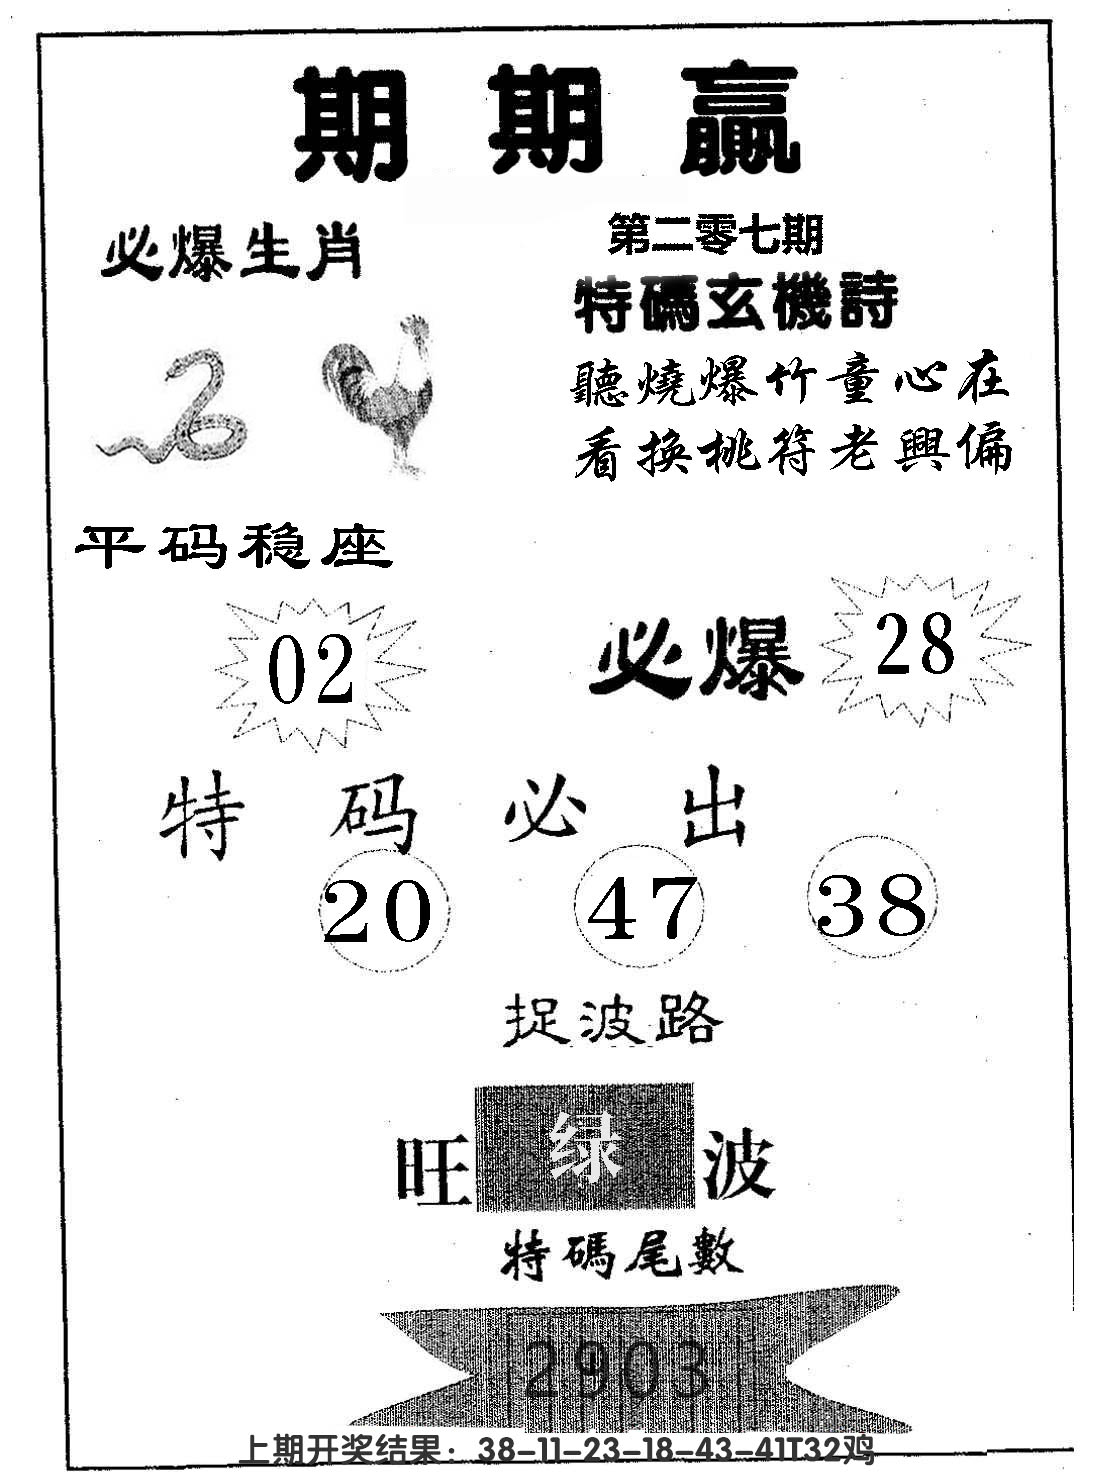 期期贏
必爆生肖
第二零七期
特碼玄機詩
聽燒爆竹童心在
看换桃符老興偏
平码稳座
02
必爆
28
特码必出
20 47 38
捉波路
旺绿波
特碼尾數
2903
上期开奖结果：38-11-23-18-43-41T32鸡